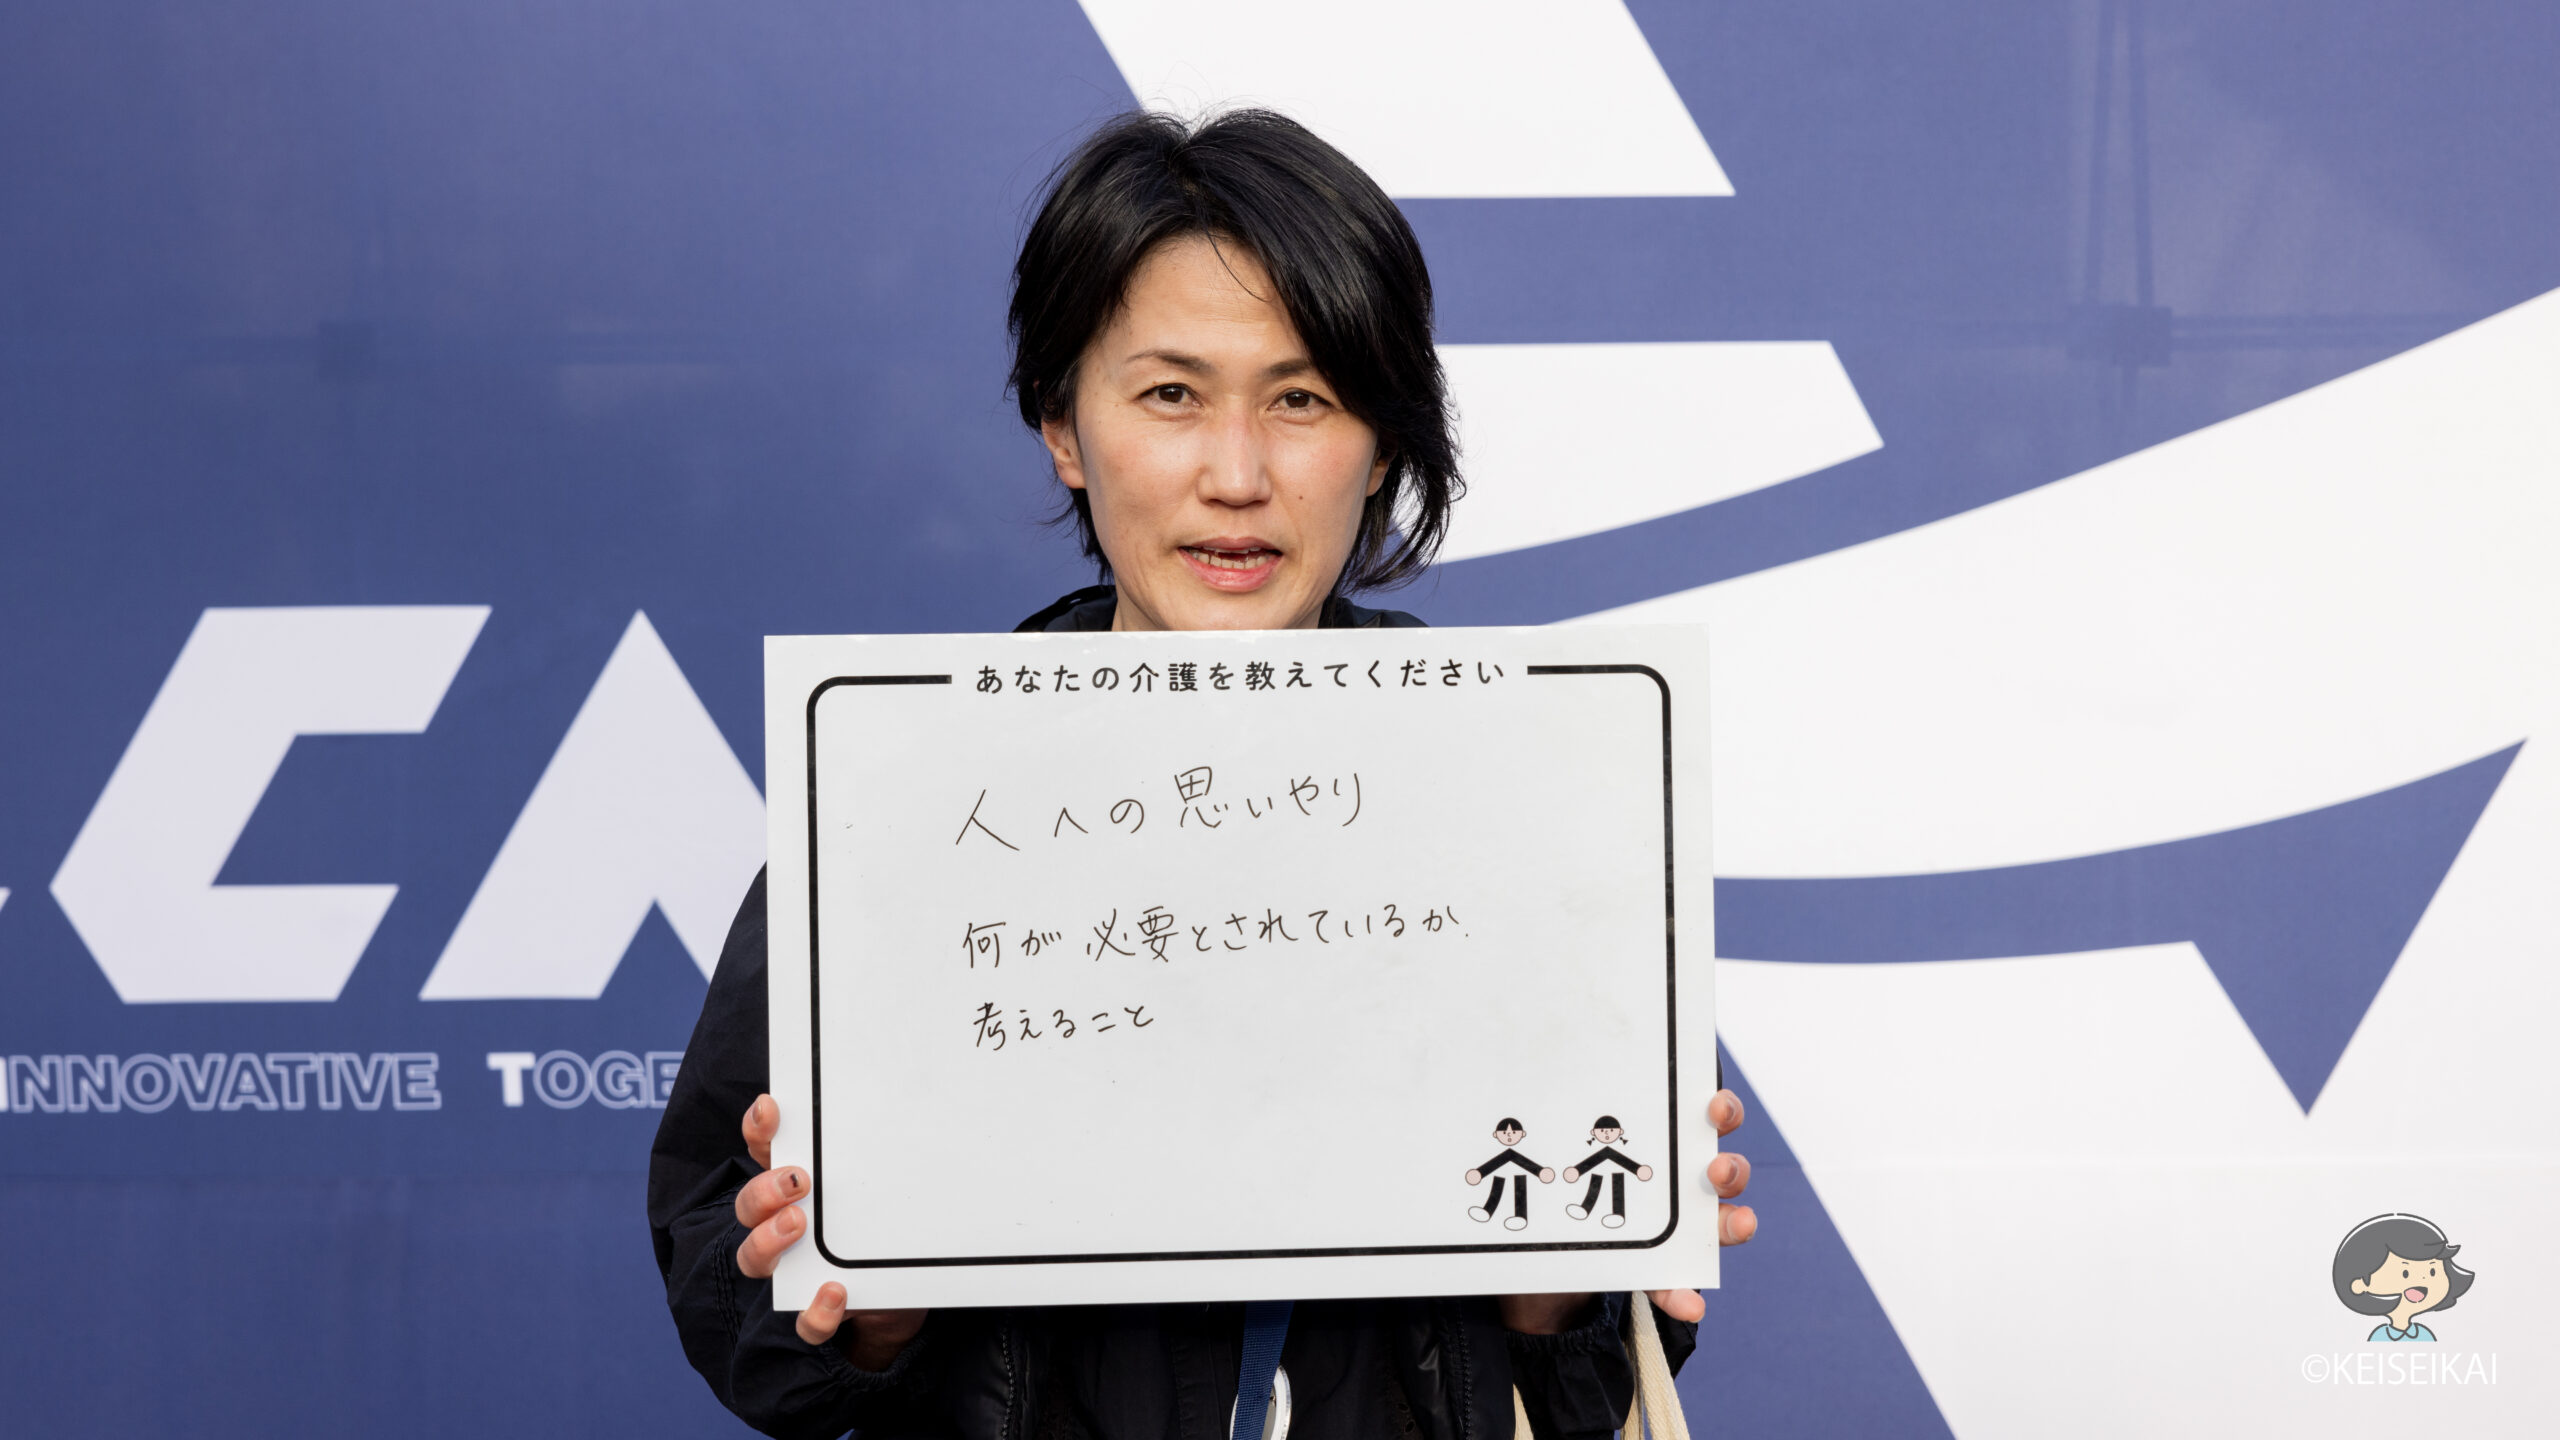 CA
INNOVATIVE TOGE
あなたの介護を教えてください
人への思いやり
何が必要とされているか
考えること
©KEISEIKAI